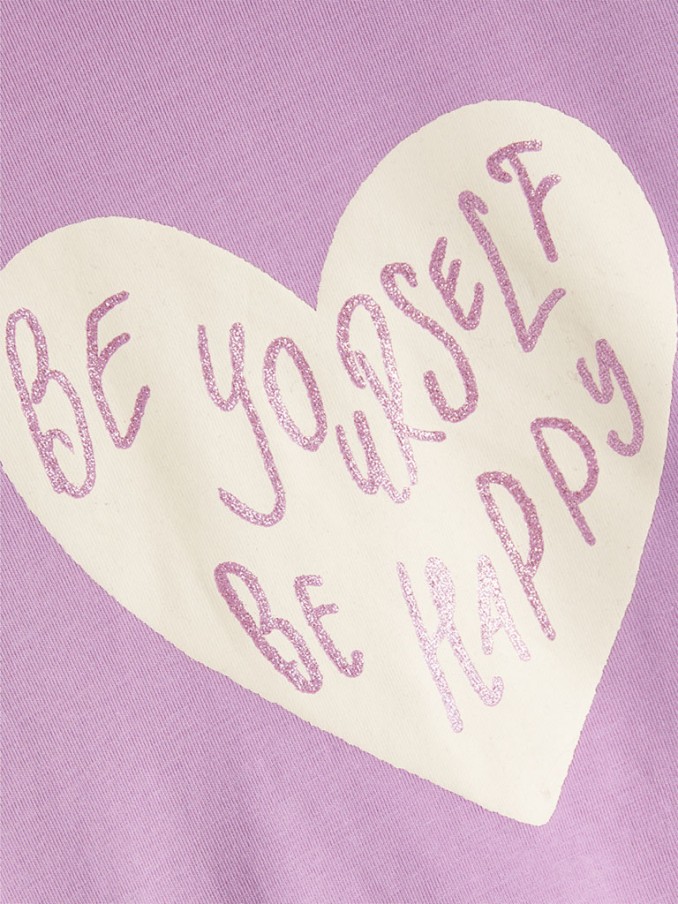 BE YOURSELF
BE HAPPY